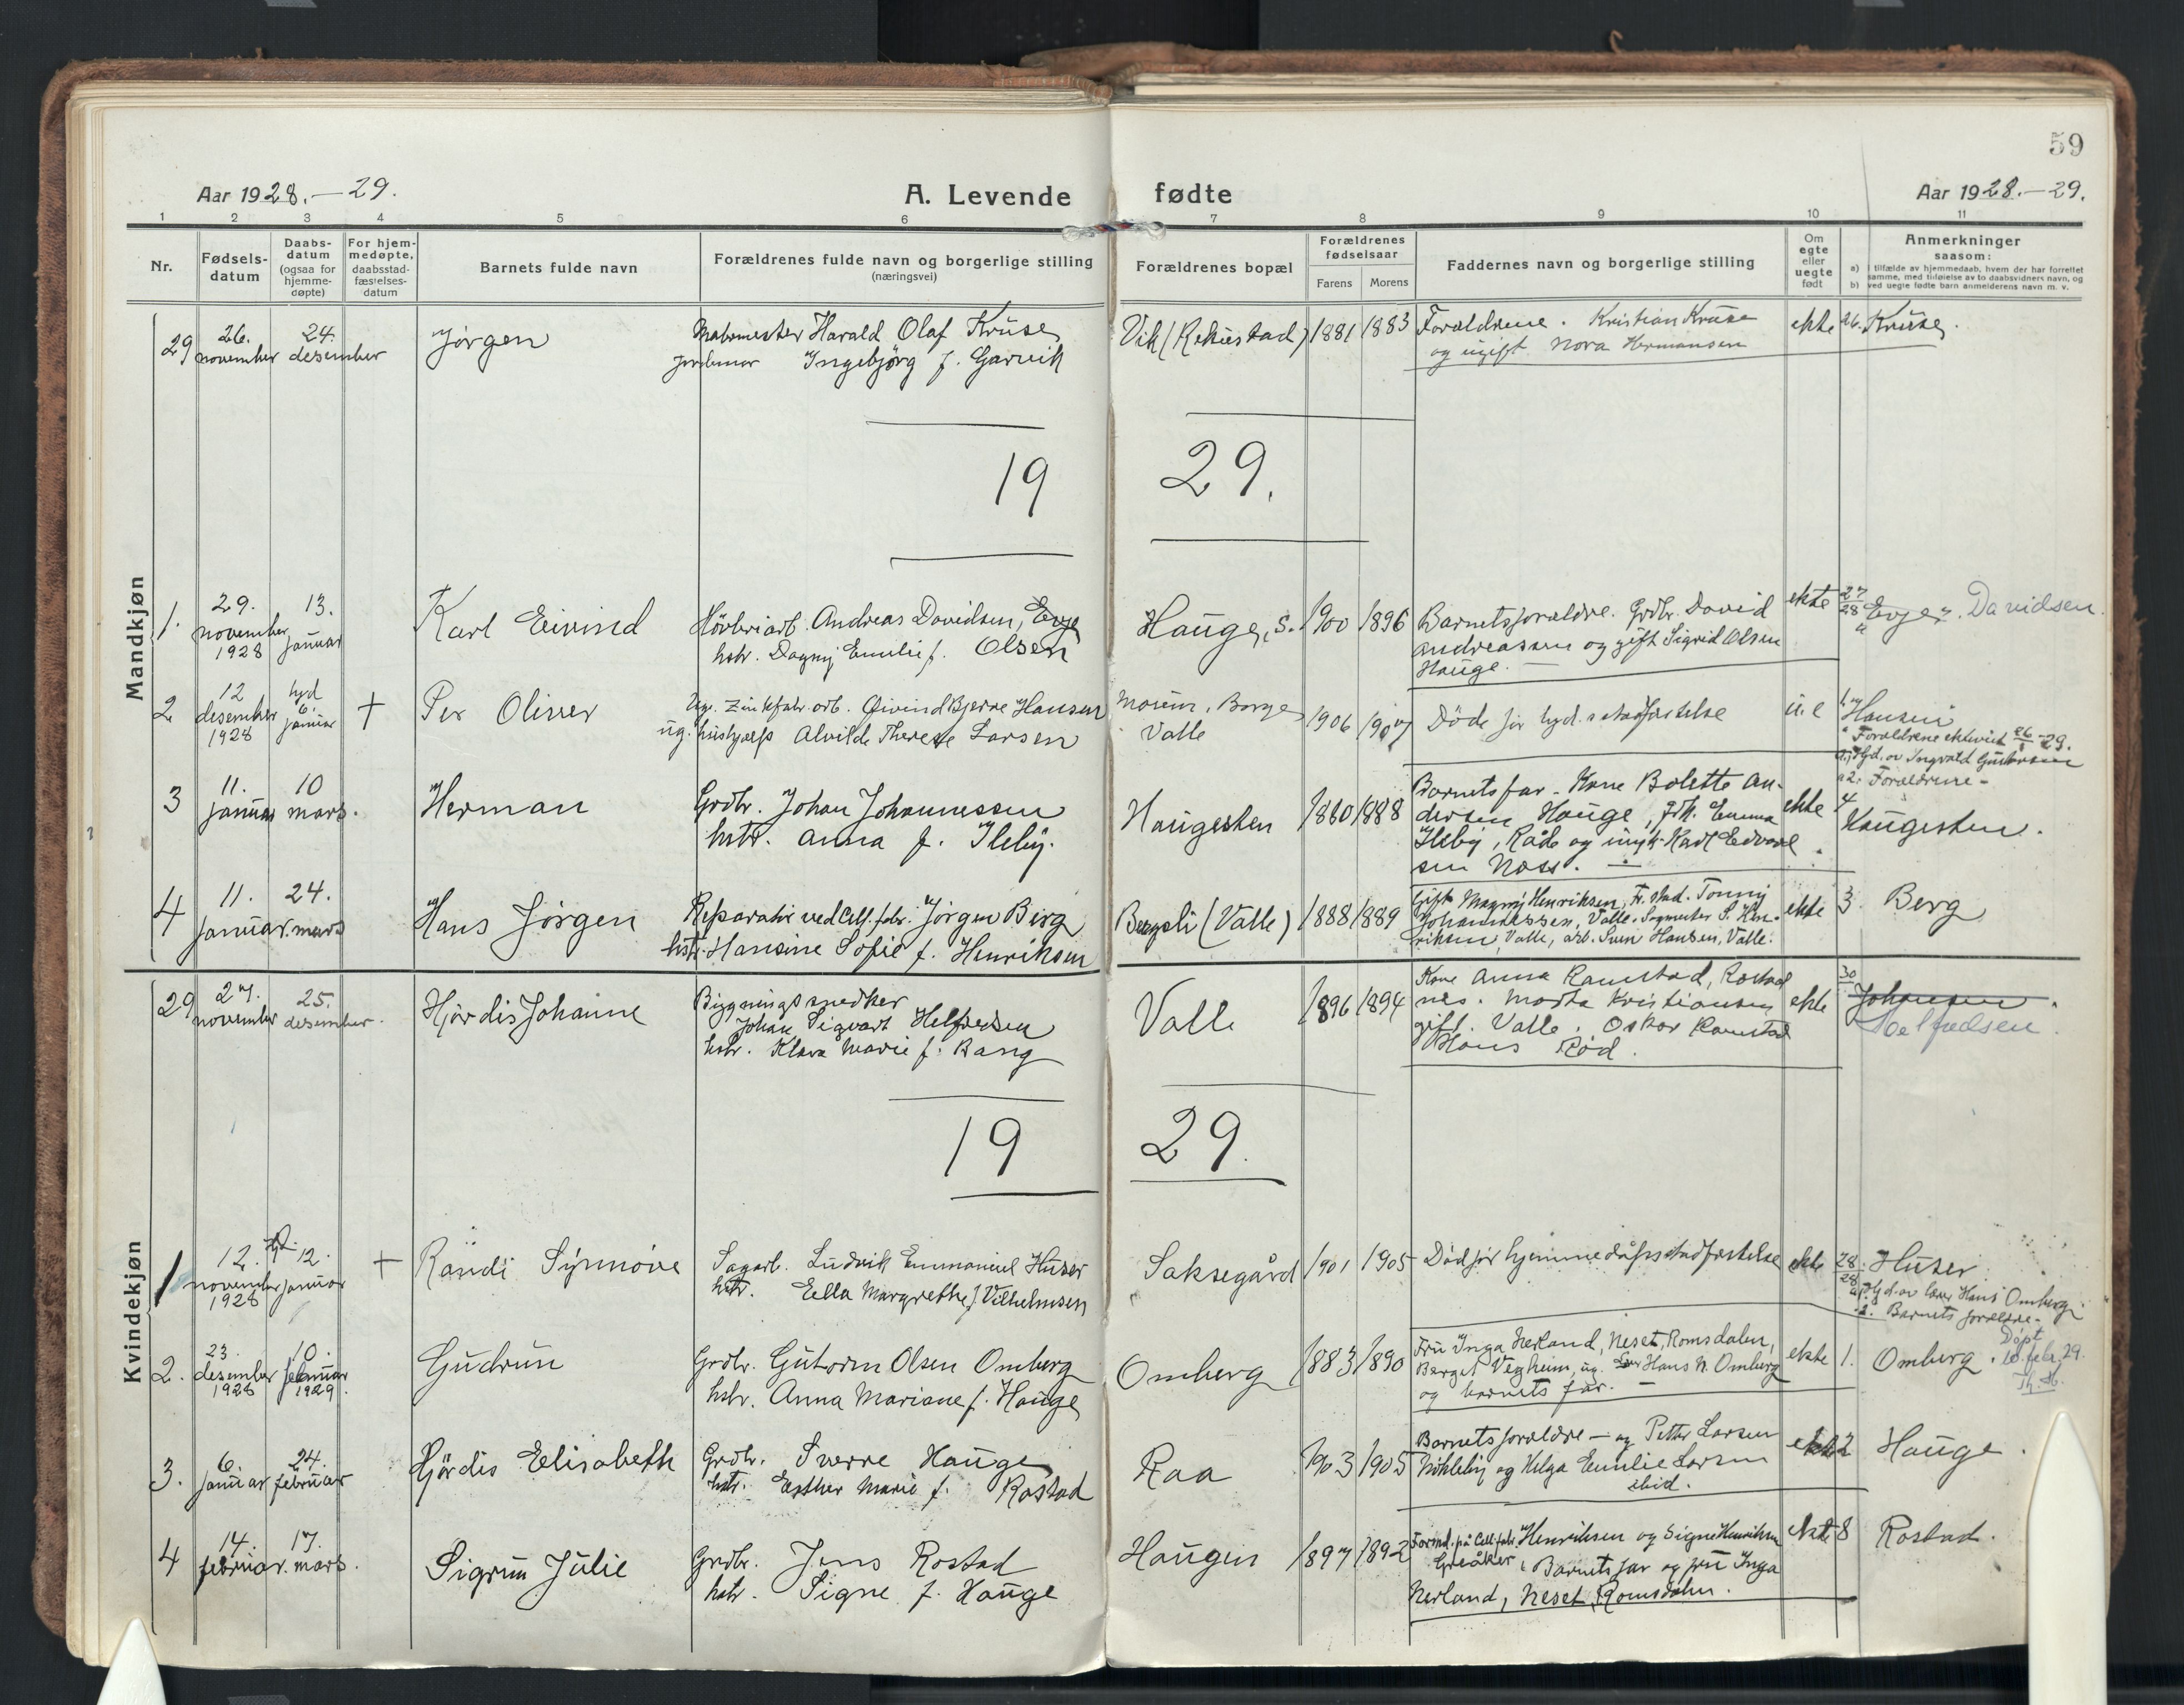 59
Aar 1928.-29.
A. Levende fødte
Aar 1928.-29.
1 2 3 4 5 6 7 8 9 10 11
Nr.
Fødsels-
datum
Daabs-
datum
(ogsaa for
hjemme-
døpte)
For hjem-
medøpte,
daabsstad-
fæstelses-
datum
Barnets fulde navn
Forældrenes fulde navn og borgerlige stilling
(næringsvei)
Forældrenes bopæl
Forældrenes
fødselsaar
Farens Morens
Faddernes navn og borgerlige stilling
Om
egte
eller
uegte
født
Anmerkninger
saasom:
a) I tilfælde av hjemmedaab, hvem der har forrettet
samme, med tilføielse av to daabsvidners navn, og
b) ved uegte fødte barn anmelderens navn m. v.
Mandkjøn
29 26. november 24. desember
Jörgen
Harald Olaf Kruse
jordmor Ingebjörg f. Garvik
Vik (Rekustad) 1881 1883
Foreldrene. Kristian Kruse
og ugift Nora Hermansen
ekte 26. Kruse
19 29.
1. 29. november 1928 13. januar
Karl Eivind
Hövleriarb. Andreas Davidsen, Evje
hstr. Dagny Emilie f. Olsen
Hauge, S. 1900 1896
Barnets foreldre. Grdbr. David
Andreassen og gift Sigrid Olsen
Hauge.
ekte 27 28 Evje. Davidsen.
2 12 desember 1928 hjd 6. januar +
Per Oliver
Ug. Zinkfabr. arb. Øivind Bjerre Hansen
ug. hushjælp Alvilde Therese Larsen
Morum, Borge
Valle
1906 1907
Döde för hjd. stadfestelse
u.e
Hansen
Foreldrene ektevied 26 29.
1. Hjd. av Ingvald Gustavsen
2. Foreldrene -
3 11. januar 10 mars.
Herman
Grdbr. Johan Johannessen
hstr. Anna f. Ileby.
Haugesten 1880 1888
Barnets far - Kone Bolette An-
dersen Hauge, frk. Emma
Ileby, Råde og ungk. Karl Edvard
sen Næss. -
ekte 4 Haugesten.
4 11. januar. 24. mars
Hans Jörgen
Reparatör ved Cell. fabr. Jörgen Berg
hstr. Hansine Sofie f. Henriksen
Bergsli (Valle) 1888 1889
Gift Magny Henriksen, Fr. stad. Tonny
Johannessen, Valle. Sagmester S. Hen-
riksen, Valle, arb. Sven Hansen, Valle.
ekte 3 Berg
Kvindekjøn
29 27. november 25. desember.
Hjördis Johanne
Bygningssnedker
Johan Sigvart Helfredsen
hstr. Klara Marie f. Bang
Valle 1896 1894
Kone Anna Ramstad, Rostad
nes. Marta Kristiansen
gift. Valle. Oskar Ramstad
Hans Röd.
ekte 30 Johansen.
Helfredsen.
19 29.
1 12. november 1928 hjd. 12. januar +
Randi Synnöve
Sagarb. Ludvik Emmanuel Huser
hstr. Ella Margrethe f. Vilhelmsen
Saksegård 1901 1905
Död för hjemmedåpsstadfestelse
ekte 28 28 Huser
1. Hjd. av lærer Hans Omberg
2. Barnets foreldre -
2. 23. desember 1928 10. februar 1929.
Gudrun
Grdbr. Gutorm Olsen Omberg
hstr. Anna Mariane f. Hauge
Omberg 1883 1890
Fru Inga Nerland, Neset, Romsdalen,
Berget Vegheim, ug. Hans N. Omberg
og barnets far. -
ekte 1. Omberg. Döpt
10. febr. 29.
Th. H.
3. 6. januar 24. februar
Hjördis Elisabeth
Grdbr. Sverre Hauge
hstr. Esther Marie f. Rostad
Raa 1903 1905
Barnets foreldre - og Petter Larsen
Nökleby og Helga Emilie Larsen
ibid.
ekte 2 Hauge.
4 14. februar. 17. mars.
Sigrun Julie
Grdbr. Jens Rostad
hstr. Signe f. Hauge
Haugen 1897 1892
Formd. på Cell. fabr. Henriksen og Signe Henriksen
Greåker, Barnets far og fru Inga
Nerland, Neset, Romsdalen.
ekte 8 Rostad.